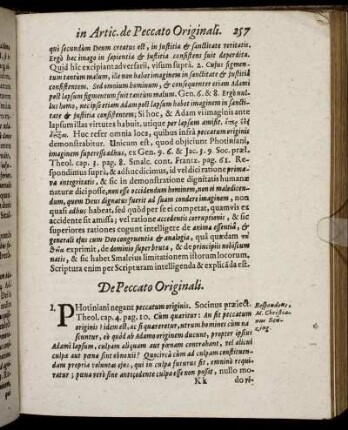 in Artic. de Peccato Originali. 257
qui secundùm Deum creatus est, in justitia & sanctitate veritatis.
Ergò hæc imago in sapientia & justitia consistens fuit deperdita.
Quid hîc excipiant adversarii, visum suprà. 2. Cujus figmen-
tum tantùm malum, ille non habet imaginem in sanctitate & justitiâ
consistentem. Sed omnium hominum, & consequenter etiam Adami
post lapsum figmentum fuit tantùm malum. Gen. 6. & 8. Ergò nul-
lus homo, nec ipse etiam Adam post lapsum habet imaginem in sancti-
tate & justitia consistentem; Si hoc, & Adam vi imaginis ante
lapsum illas virtutes habuit, utique per lapsum amisit.
Huc refer omnia loca, quibus infrà peccatum originis
demonstrabitur. Unicum est, quod objiciunt Photiniani,
imaginem superesse adhuc, ex Gen. 9. 6. & Jac. 3. 9. Soc. præl.
Theol. cap. 3. pag. 8. Smalc. cont. Frantz. pag. 61. Re-
spondimus suprà, & adhuc dicimus, id vel dici ratione primæ-
væ integritatis, & sic in demonstratione dignitatis humanæ
naturæ dici posse, non esse occidendum hominem, non ei maledicen-
dum, quem Deus dignatus fuerit ad suam condere imaginem, non
quasi adhuc habeat, sed quòd per se ei competat, quamvis ex
accidente sit amissa; vel ratione accidentis corruptionis, & sic
superiores rationes cogunt intelligere de anima essentiâ, &
generali ejus cum Deo congruentia & analogia, quâ quædam
exprimit, de dominio super bruta, & de principiis nobiscum
natis, & sic habet Smalcius limitationem istorum locorum,
Scriptura enim per Scripturam intelligenda & explicãda est.
De Peccato Originali.
I. PHotiniani negant peccatum originis. Socinus prælect.
Theol. cap. 4. pag. 10. Cùm quæritur: An sit peccatum
originis? idem est, ac si quæreretur, utrum homines cùm na-
scuntur, ex quò ab Adamo originem ducunt, propter ipsius
Adami lapsum, culpam aliquam aut pœnam contrahant, vel alicui
culpæ aut pœnæ sint obnoxii? Quocircà cùm ad culpam constituen-
dam propria voluntas ejus, qui in culpa futurus sit, omninò requi-
ratur; pœna verò sine antecedente culpa esse non possit, nullo mo-
Respondens,
M. Christia-
K k
do ve-